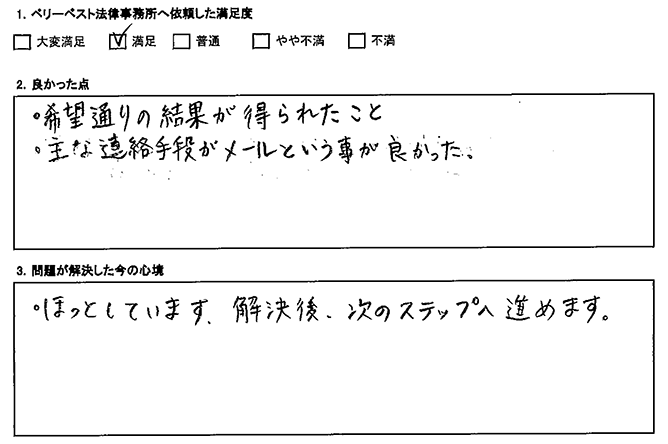 1. ベリーベスト法律事務所へ依頼した満足度
□ 大変満足 ☑ 満足 □ 普通 □ やや不満 □ 不満
2. 良かった点
・希望通りの結果が得られたこと
・主な連絡手段がメールという事が良かった。
3. 問題が解決した今の心境
・ほっとしています、解決後、次のステップへ進めます。